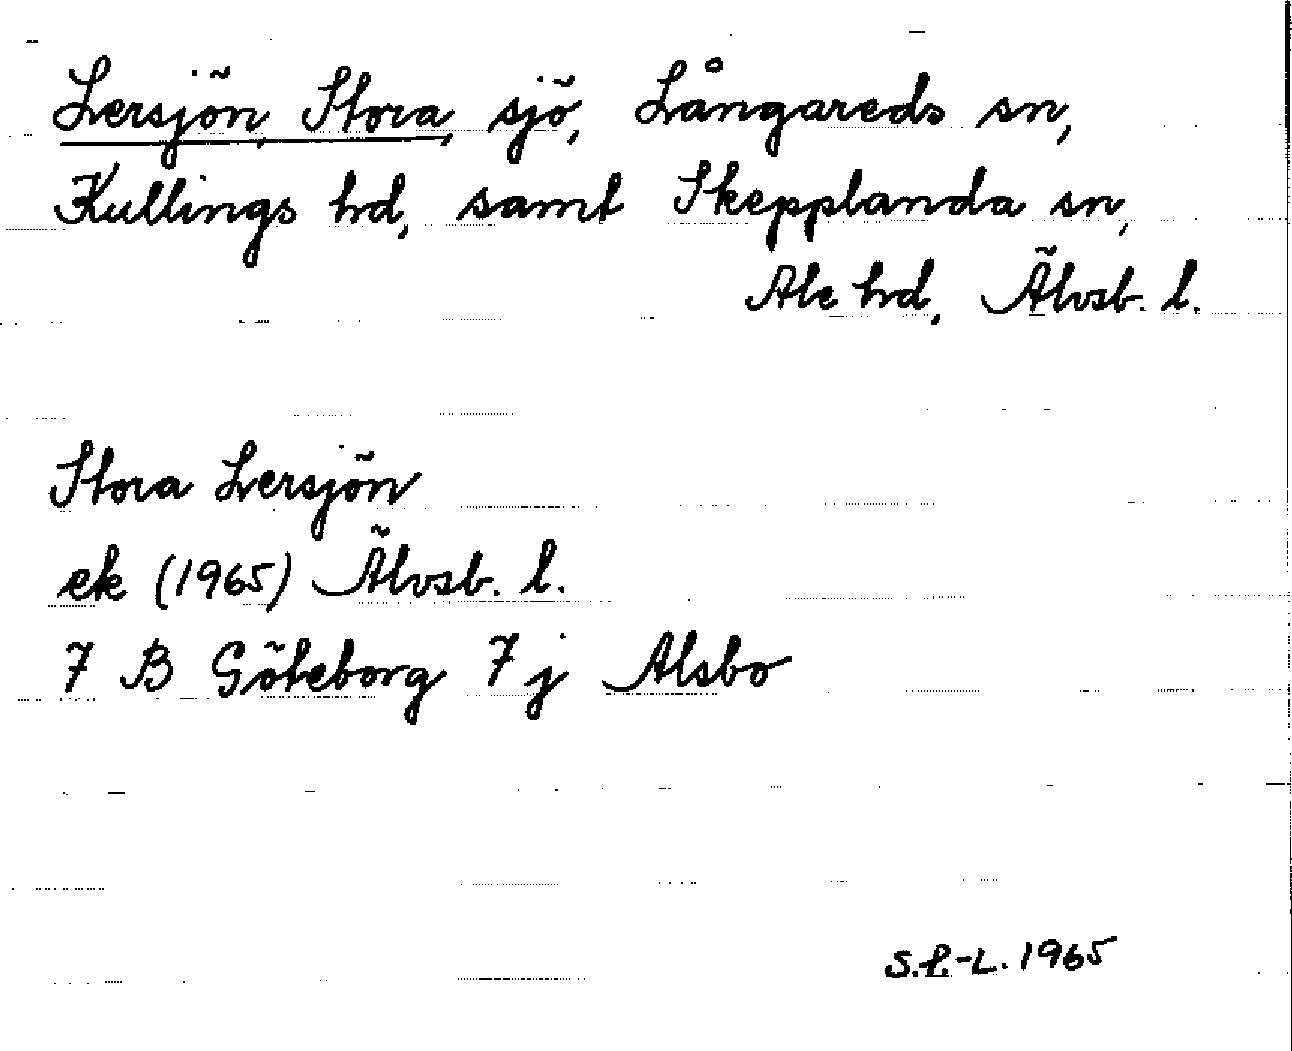 Lersjön, Stora, sjö, Långareds sn,
Kullings hd, samt Skepplanda sn,
Ale hd, Älvsb. l.
Stora Lersjön
ek (1965) Älvsb. l.
7 B Göteborg 7 j Alsbo
S.P.-L. 1965